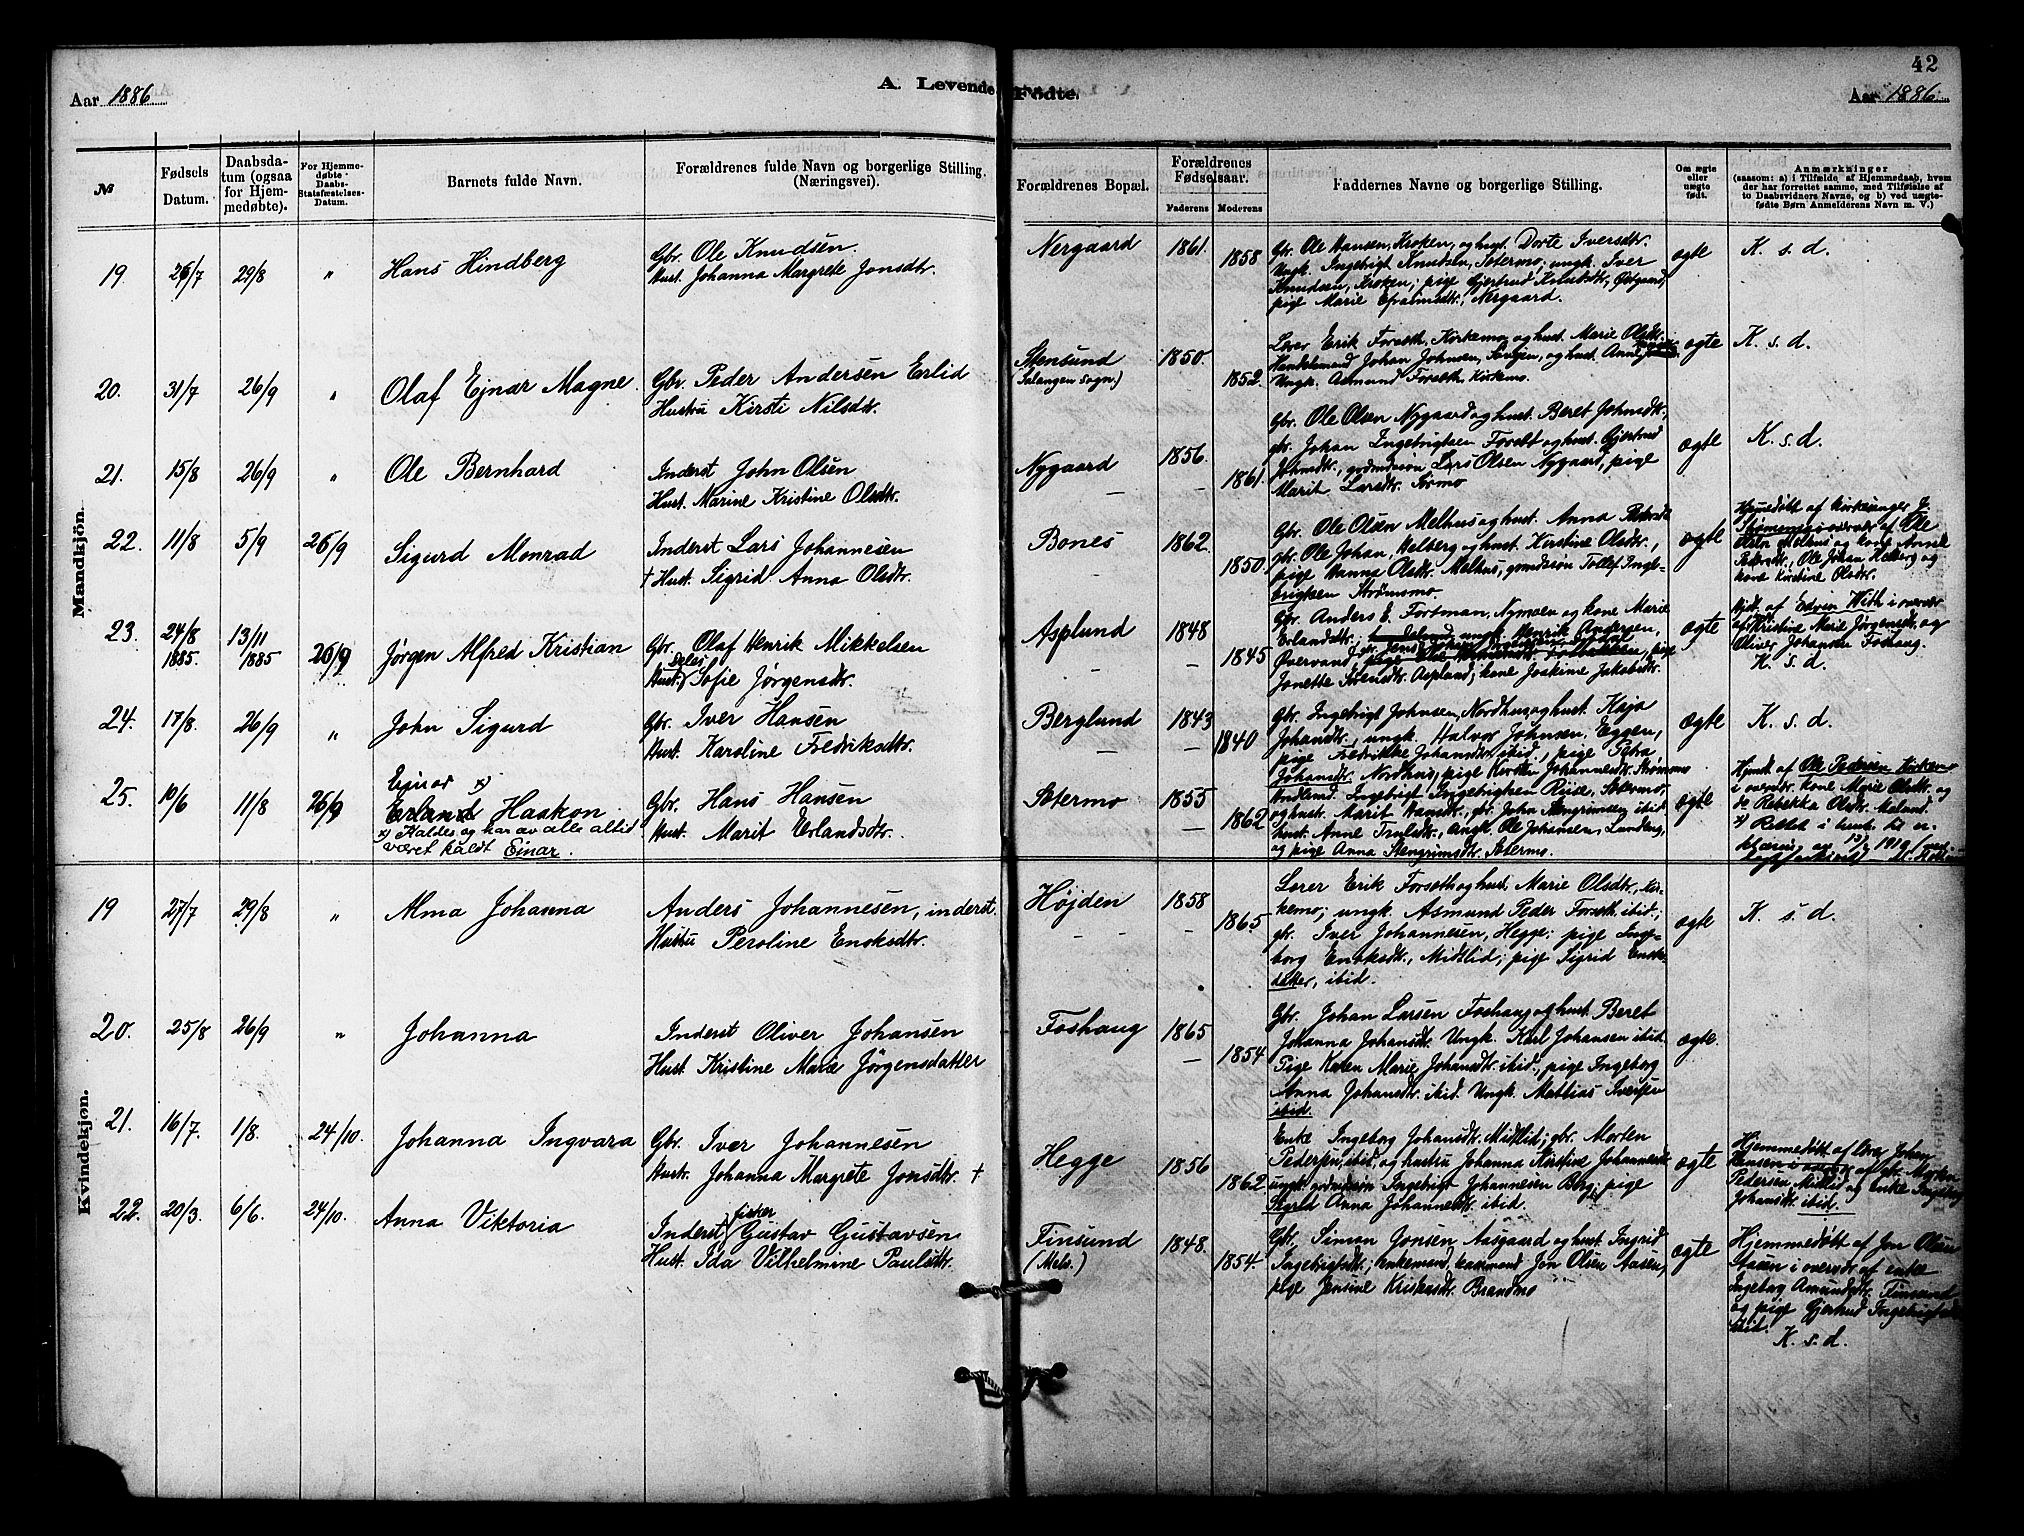 42
Aar 1886
A. Levende Fødte.
Aar 1886
№
Fødsels Datum.
Daabsdatum (ogsaa for Hjemmedøbte).
For Hjemmedøbte Daabs-Statsfæstelses-Datum.
Barnets fulde Navn.
Forældrenes fulde Navn og borgerlige Stilling. (Næringsvei).
Forældrenes Bopæl.
Forældrenes Fødselsaar.
Faderens
Moderens
Faddernes Navne og borgerlige Stilling.
Om ægte eller uægte født.
Anmærkninger
(saasom: a) i Tilfælde af Hjemmedaab, hvem der har forrettet samme, med Tilføielse af to Daabsvidners Navne, og b) ved uægtefødte Børn Anmelderens Navn m. V.)
Mandkjön.
19. 26/7 29/8 " Hans Hindberg
Gbr. Ole Knudsen
Hust. Johanna Margrete Jonsdtr.
Nergaard 1861. 1858
Gbr. Ole Hansen, Kroken, og hust. Dorte Iversdtr.
Ungk. Ingebrigt Knudsen, Setermo; ungk. Iver
Knudsen, Kroken; pige Gjertrud Knutsdtr, Østgaard,
pige Marie Efraimsdtr., Nergaard.
ægte K. s. d.
20. 31/7 26/9 " Olaf Ejnar Magne.
Gbr. Peder Andersen Erlid
Hustru Kirsti Nilsdtr.
Stensund
(Salangen sogn.)
1850. 1852.
Lærer Erik Forseth, Kirkemo og hust. Marie Olsdtr.
Handelsmand Johan Johnsen, og hust. Anne
Ungk. Asmund Forseth Kirkemo.
ægte K. s. d.
21. 15/8 26/9 " Ole Bernhard
Inderst John Olsen
Hust. Marine Kristine Olsdtr.
Nygaard 1856. 1861.
Gbr. Ole Olsen Nygaard og hust. Beret Johnsdtr.,
gbr. Johan Ingebrigtsen Foselt og hust. Gjertrud
Johnsdtr., grdmdssøn Lars Olsen Nygaard, pige
Marit Larsdtr. Sørmo
ægte K. s. d.
22. 11/8 5/9 26/9 Sigurd Monrad
Inderst Lars Johannesen
† Hust. Sigrid Anna Olsdtr.
Bones 1862. 1850.
Gbr. Ole Olsen Melhus og hust. Anna Pedersdtr
gbr. Ole Johan, Helberg og hust. Kirstine Olsdtr.,
pige Hanna Olsdtr. Melhus, grmdssøn Tollef Inge-
brigtsen Strømsmo
ægte
Hjemedøbt af Kirkesanger J.
Strømsmo i overvær af Ole
Olsen Melhus og kone Anne
Pedersdt, Ole Johan Helberg og
kone Kirstine Olsdtr.
23. 24/8 1885. 13/11 1885 26/9 Jørgen Alfred Kristian
Gbr. Olaf Henrik Mikkelsen
Hust. Sofie Jørgensdtr.
Asplund 1848 1845
Gbr. Anders E. Fortman, Nymoen og kone Marie
Erlandsdtr.; ungk. Henrik Andersen,
Øvervand, pige
Jonette Sørensdtr. Asplund; kone Joakime Jakobsdtr.
ægte
Hjdt. af Edvin With i overvær
af Kristine Marie Jørgensdtr. og
Oliver Johansen Foshaug.
K. s. d.
24. 17/8. 26/9 " John Sigurd
Gbr. Iver Hansen
Hust. Karoline Fredriksdtr.
Berglund 1843 1840
Gbr. Ingebrigt Johnsen, Nordhus og hust. Kaja
Johansdtr., ungk. Halvor Johnsen, Eggen,
pige Fredrikke Johansdtr. ibid., pige Petra
Johansdtr. Nordhus, pige Kirsten Johannesdtr. Strømsmo
ægte K. s. d.
25. 10/6 11/8 26/9
Ejnar x)
Erland Haakon
x) Kaldes og har av alle altid
været kaldt Einar.
Gbr. Hans Hansen
Hust. Marit Erlandsdtr.
Setermo 1855 1862
Indland. Ingebrigt Ingebrigtsen Ruse, Setermo,
og hust. Marit Hansdtr., gbr. John Stengrimsen ibid
hust. Anne Trulsdtr., ungk. Ole Johansen, Lundberg,
og pige Anna Stengrimsdtr. Setermo.
ægte
Hjmdt. af Ole Pedersen Kirkemo
i overvær. kone Marie Olsdtr. og
de Rebekka Olsdtr. Moland.
x) Rettet i henh. til er-
klæring av 13/2 1919
Kvindekjøn.
19 27/7 29/8 " Alma Johanna
Anders Johannesen, inderst.
Hustru Peroline Enoksdtr.
Højden 1858 1865
Lærer Erik Forseth og hust. Marie Olsdtr., Kir-
kemo; ungk. Asmund Peder Forseth ibid.;
gbr. Iver Johannesen, Hegge; pige Inge-
borg Enoksdtr., Midtlid; pige Sigrid Enoks-
datter, ibid.
ægte K. s. d.
20. 25/8 26/9 " Johanna
Inderst Oliver Johansen
Hust. Kristine Marie Jörgensdatter
Foshaug 1865 1854
Gbr. Johan Larsen Foshaug og hust. Beret
Johanna Johansdtr. Ungk. Karl Johansen ibid.
Pige Karen Marie Johansdtr. ibid., pige Ingeborg
Anna Johansdtr. ibid. Ungk. Mattias Iversen
ibid.
ægte.
21. 16/7. 1/8. 24/10. Johanna Ingvara
Gbr. Iver Johannesen
Hustr. Johanna Margrete Jonsdtr. †
Hegge 1856 1862
Enke Ingeborg Johansdtr. Midtlid; gbr. Morten
Pedersen, ibid, og hustru Johanna Kirstine Johannesdtr
ungk. grdmdssøn Ingebrigt Johannesen Berg; pige
Sigrid Anna Johannesdtr. ibid.
ægte
Hjemmedøbt af lærer Johan
Hansen i overvær af gbr Morten
Pedersen Midtlid og enke Ingeborg
Johansdtr. ibid.
22. 20/3. 6/6. 24/10. Anna Viktoria
Inderst, fisker Gustav Gustavsen
Hust. Ida Vilhelmine Paulsdtr.
Finsund
(Mels.)
1848. 1854.
Gbr. Simon Jonsen Aasgaard og hust. Ingrid
Ingebrigtsdtr.; enkemand, kaarmand Jon Olsen Aasen,
pige Jensine Kristiansdtr. Brandmo
ægte
Hjemmedøbt af Jon Olsen
Aasen i overvær af enke
Ingeborg Amundsdtr. Finsund
og pige Gjertrud Ingebrigtsdtr
ibid.
K. s. d.